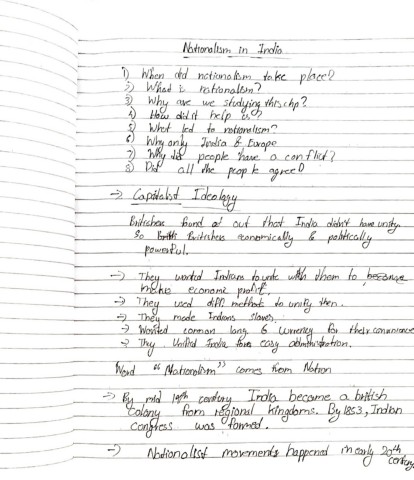 Nationalism in India
1) When did nationalism take place?
2) What is nationalism?
3) Why are we studying this chp?
4) How did it help us?
5) What led to nationalism?
6) Why only India & Europe
7) Why did people have a conflict?
8) Did all the people agree?
→ Capitalist Ideology
Britishers found out that India didn't have unity.
So Britishers economically & politically
powerful.
→ They wanted Indians to unite with them to
make economic profit.
→ They used diff. methods to unify them.
→ They made Indians slaves.
→ Wanted common lang & currency for their convenience
→ They United India for easy administration.
Word "Nationalism" comes from Nation
→ By mid 19th century India became a british
colony from regional kingdoms. By 1853, Indian
congress was formed.
→ Nationalist movements happened in early 20th
century